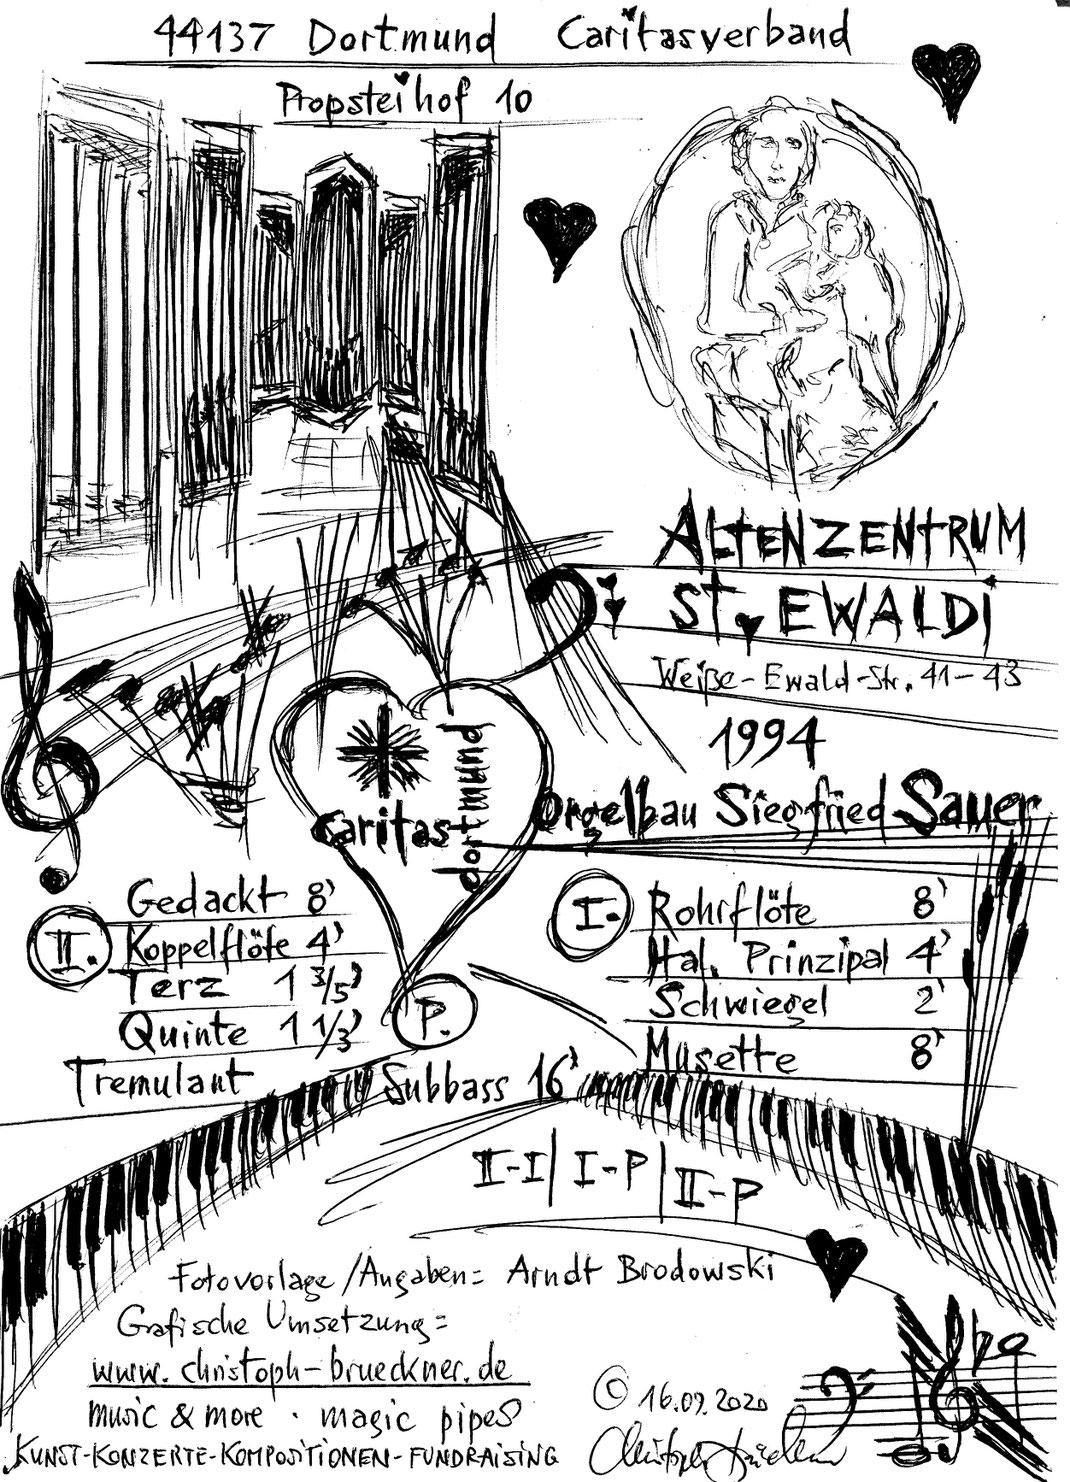 44137 Dortmund Caritasverband
Propsteihof 10
ALTENZENTRUM
ST. EWALDi
Weiße-Ewald-Str. 41-43
1994
Orgelbau Siegfried Sauer
caritas
dortmund
II.
Gedackt 8'
Koppelflöte 4'
Terz 1 3/5'
Quinte 1 1/3'
Tremulant
I.
Rohrflöte 8'
Hal. Prinzipal 4'
Schwiegel 2'
Musette 8'
P.
Subbass 16'
II-I| I-P| II-P
Fotovorlage/Angaben= Arndt Brodowski
Grafische Umsetzung=
www.christoph-brueckner.de
music & more · magic pipes
KUNST-KONZERTE-KOMPOSITIONEN-FUNDRAISING
© 16.09.2020